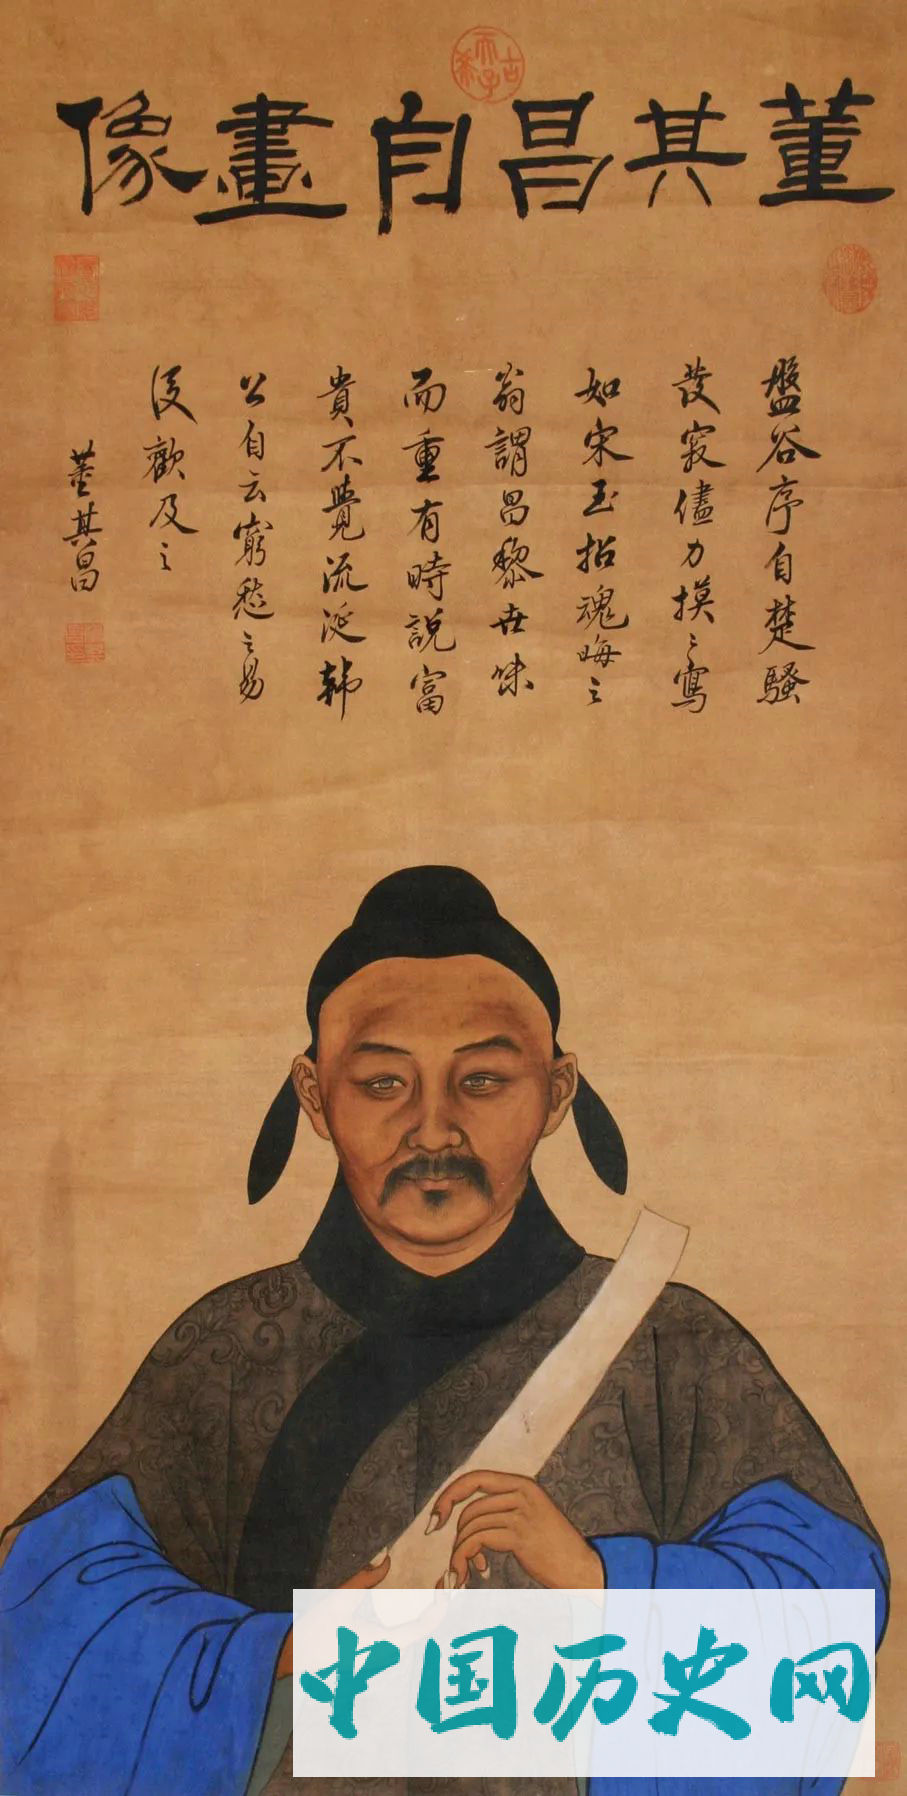 古希天子
董其昌自畫像
盤谷序自楚騷
發竅儘力摸寫
如宋玉招魂晦之
翁謂昌黎世味
而重有時說富
貴不覺流涎韩
公自云窮愁之易
歡及之
董其昌
中国历史网